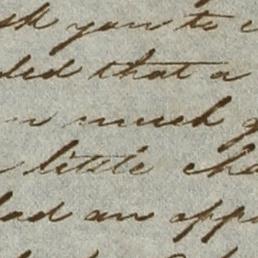 ask you to
ded that a
much
little cha
had an app